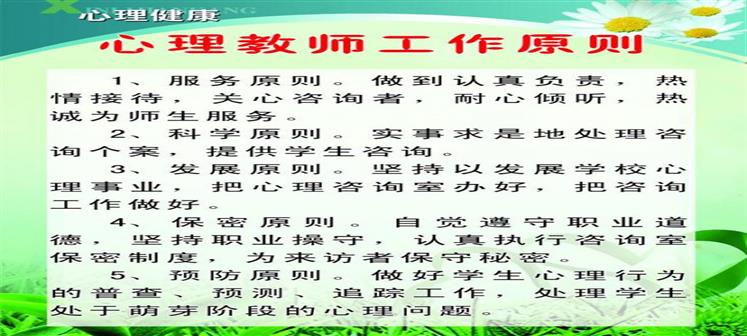 心理健康
心理教师工作原则
1、服务原则。做到认真负责，热
情接待，关心咨询者，耐心倾听，热
诚为师生服务。
2、科学原则。实事求是地处理咨
询个案，提供学生咨询。
3、发展原则。坚持以发展学校心
理事业，把心理咨询室办好，把咨询
工作做好。
4、保密原则。自觉遵守职业道
德，坚持职业操守，认真执行咨询室
保密制度，为来访者保守秘密。
5、预防原则。做好学生心理行为
的普查、预测、追踪工作，处理学生
处于萌芽阶段的心理问题。